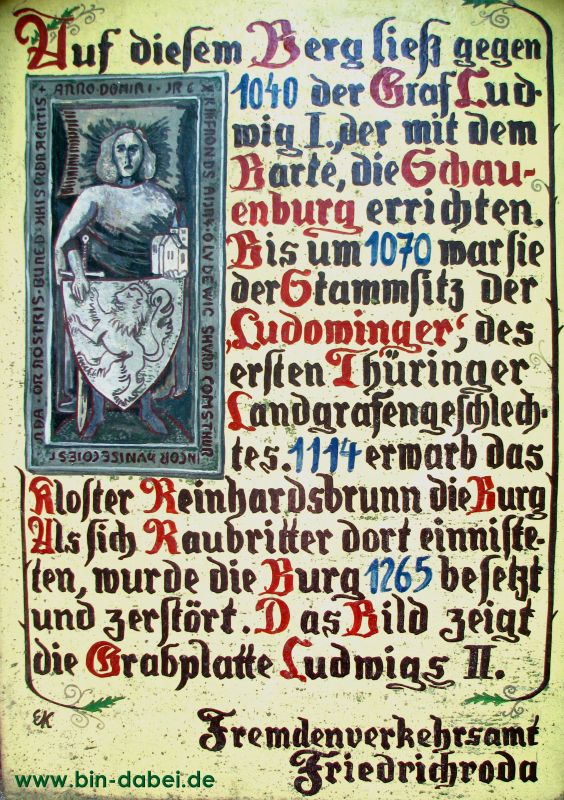 Auf diesem Berg ließ gegen
1040 der Graf Lud-
wig I., der mit dem
Barte, die Schau-
enburg errichten.
Bis um 1070 war sie
der Stammsitz der
‚Ludowinger‘, des
ersten Thüringer
Landgrafengeschlech-
tes. 1114 erwarb das
Kloster Reinhardsbrunn die Burg
Als sich Raubritter dort einniste-
ten, wurde die Burg 1265 besetzt
und zerstört. Das Bild zeigt
die Grabplatte Ludwigs II.
EK
Fremdenverkehrsamt
Friedrichroda
www.bin-dabei.de